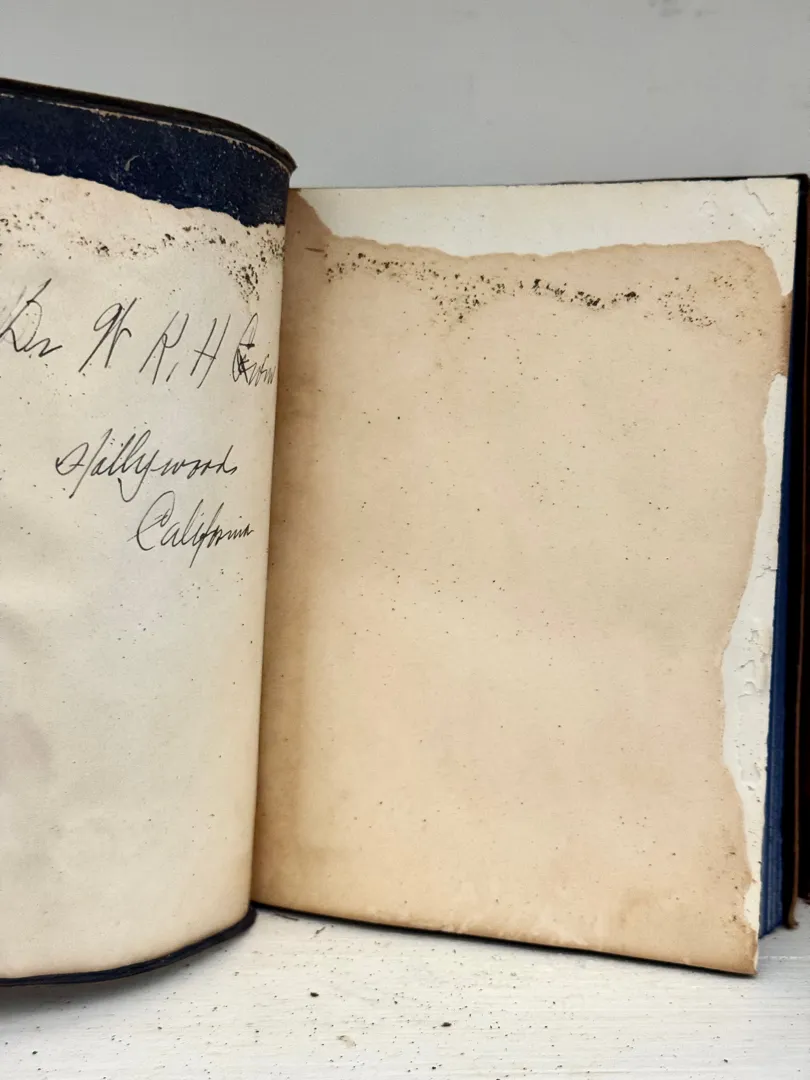 Dr W R, H
Hollywood
California